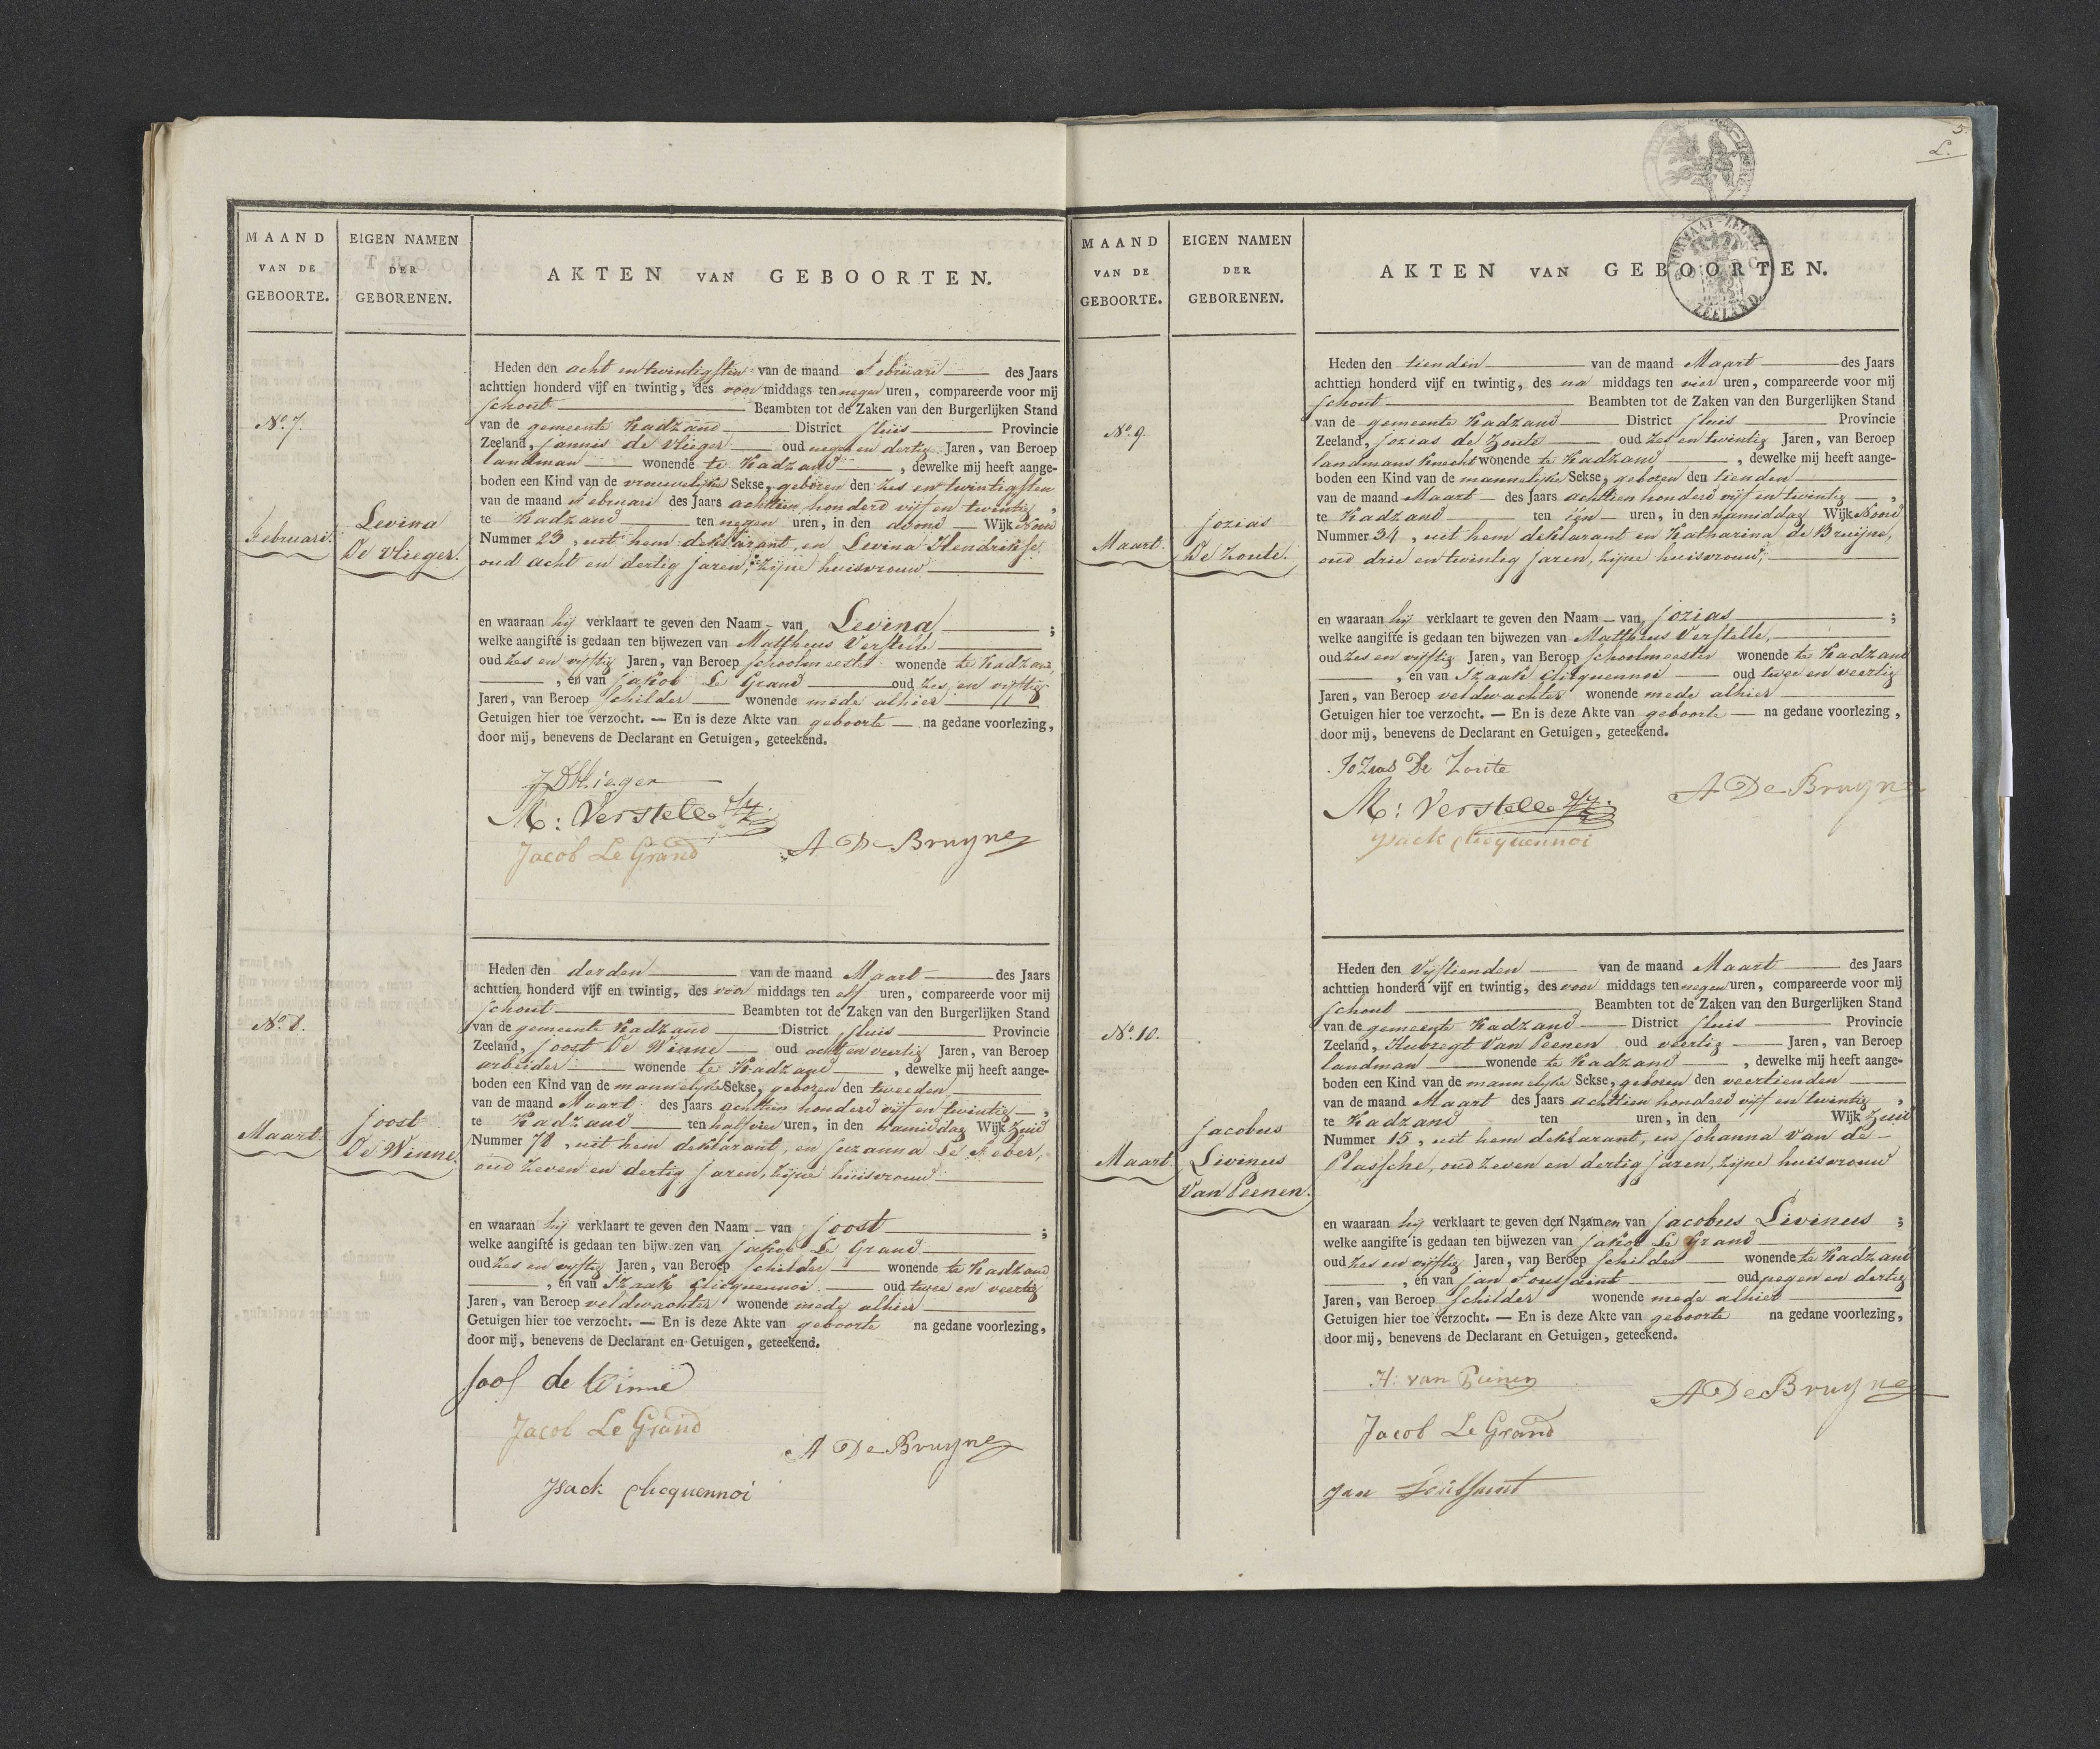 MAAND
VAN DE
GEBOORTE.
EIGEN NAMEN
DER
GEBORENEN.
AKTEN VAN GEBOORTEN.
No. 7.
Februari.
Levina
De Vlieger.
Heden den acht en twintigsten van de maand Februari des Jaars
achttien honderd vijf en twintig, des voor middags ten negen uren, compareerde voor mij
schout Beambten tot de Zaken van den Burgerlijken Stand
van de gemeente Kadzand District Sluis Provincie
Zeeland, Jannis de Vlieger oud negen en dertig Jaren, van Beroep
landman wonende te Kadzand, dewelke mij heeft aange-
boden een Kind van de vrouwelijke Sekse, geboren den zes en twintigsten
van de maand Februari des Jaars achttien honderd vijf en twintig,
te Kadzand ten negen uren, in den avond Wijk Noord
Nummer 23, uit hem deklarant, en Levina Hendrikse
oud acht en dertig jaren, zijne huisvrouw
en waaraan hij verklaart te geven den Naam - van Levina ;
welke aangifte is gedaan ten bijwezen van Mattheus Verstelle
oud zes en vijftig Jaren, van Beroep schoolmeester wonende te Kadzand
, en van Jakob Le Grand oud zes en vijftig
Jaren, van Beroep schilder wonende mede alhier
Getuigen hier toe verzocht. — En is deze Akte van geboorte — na gedane voorlezing,
door mij, benevens de Declarant en Getuigen, geteekend.
JD Vlieger
M: Verstelle
Jacob Le Grand
A De Bruyne
No. 8.
Maart.
Joost
De Winne.
Heden den derden van de maand Maart des Jaars
achttien honderd vijf en twintig, des voor middags ten elf uren, compareerde voor mij
schout Beambten tot de Zaken van den Burgerlijken Stand
van de gemeente Kadzand District Sluis Provincie
Zeeland, Joost De Winne oud acht en veertig Jaren, van Beroep
arbeider wonende te Kadzand, dewelke mij heeft aange-
boden een Kind van de mannelijke Sekse, geboren den tweeden
van de maand Maart des Jaars achttien honderd vijf en twintig,
te Kadzand ten half vier uren, in den namiddag Wijk Zuid
Nummer 78, uit hem deklarant, en Suzanna Le Feber,
oud zeven en dertig jaren, zijne huisvrouw
en waaraan hij verklaart te geven den Naam - van Joost ;
welke aangifte is gedaan ten bijwezen van Jakob Le Grand
oud zes en vijftig Jaren, van Beroep schilder wonende te Kadzand
, en van Izaak Clicquennoi oud twee en veertig
Jaren, van Beroep veldwachter wonende mede alhier
Getuigen hier toe verzocht. — En is deze Akte van geboorte na gedane voorlezing,
door mij, benevens de Declarant en Getuigen, geteekend.
Joos de Winne
Jacob Le Grand
A De Bruyne
Jsack Clicquennoi
5.
L.
ZEELAND
MAAND
VAN DE
GEBOORTE.
EIGEN NAMEN
DER
GEBORENEN.
AKTEN VAN GEBOORTEN.
No. 9.
Maart.
Jozias
De Zoute.
Heden den tienden van de maand Maart des Jaars
achttien honderd vijf en twintig, des na middags ten vier uren, compareerde voor mij
schout Beambten tot de Zaken van den Burgerlijken Stand
van de gemeente Kadzand District Sluis Provincie
Zeeland, Jozias de Zoute oud zes en twintig Jaren, van Beroep
landmans knecht wonende te Kadzand, dewelke mij heeft aange-
boden een Kind van de mannelijke Sekse, geboren den tienden
van de maand Maart des Jaars achttien honderd vijf en twintig,
te Kadzand ten één uren, in den namiddag Wijk Noord
Nummer 34, uit hem deklarant en Katharina de Bruijne,
oud drie en twintig jaren, zijne huisvrouw,
en waaraan hij verklaart te geven den Naam - van Jozias ;
welke aangifte is gedaan ten bijwezen van Mattheus Verstelle,
oud zes en vijftig Jaren, van Beroep schoolmeester wonende te Kadzand
, en van Izaak Clicquennoi oud twee en veertig
Jaren, van Beroep veldwachter wonende mede alhier
Getuigen hier toe verzocht. — En is deze Akte van geboorte — na gedane voorlezing,
door mij, benevens de Declarant en Getuigen, geteekend.
JoZias De Zoute
A De Bruyne
M: Verstelle
Jsack Clicquennoi
No. 10.
Maart
Jacobus
Livinus
Van Peenen.
Heden den Vijftienden van de maand Maart des Jaars
achttien honderd vijf en twintig, des voor middags ten negen uren, compareerde voor mij
schout Beambten tot de Zaken van den Burgerlijken Stand
van de gemeente Kadzand District Sluis Provincie
Zeeland, Hubregt Van Peenen oud veertig Jaren, van Beroep
landman wonende te Kadzand, dewelke mij heeft aange-
boden een Kind van de mannelijke Sekse, geboren den veertienden
van de maand Maart des Jaars achttien honderd vijf en twintig,
te Kadzand ten uren, in den Wijk Zuid
Nummer 15, uit hem deklarant, en Johanna Van de
Plassche, oud zeven en dertig jaren, zijne huisvrouw
en waaraan hij verklaart te geven den Naamen van Jacobus Livinus ;
welke aangifte is gedaan ten bijwezen van Jakob Le Grand
oud zes en vijftig Jaren, van Beroep schilder wonende te Kadzand
, en van Jan Toussaint oud negen en dertig
Jaren, van Beroep schilder wonende mede alhier
Getuigen hier toe verzocht. — En is deze Akte van geboorte na gedane voorlezing,
door mij, benevens de Declarant en Getuigen, geteekend.
H: van Peenen
A De Bruyne
Jacob Le Grand
Jan Toussaint